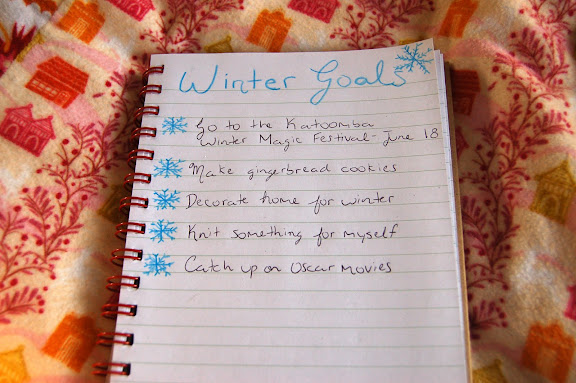 Winter Goals
Go to the Katoomba
Winter Magic Festival - June 18
Make gingerbread cookies
Decorate home for winter
Knit something for myself
Catch up on Oscar movies